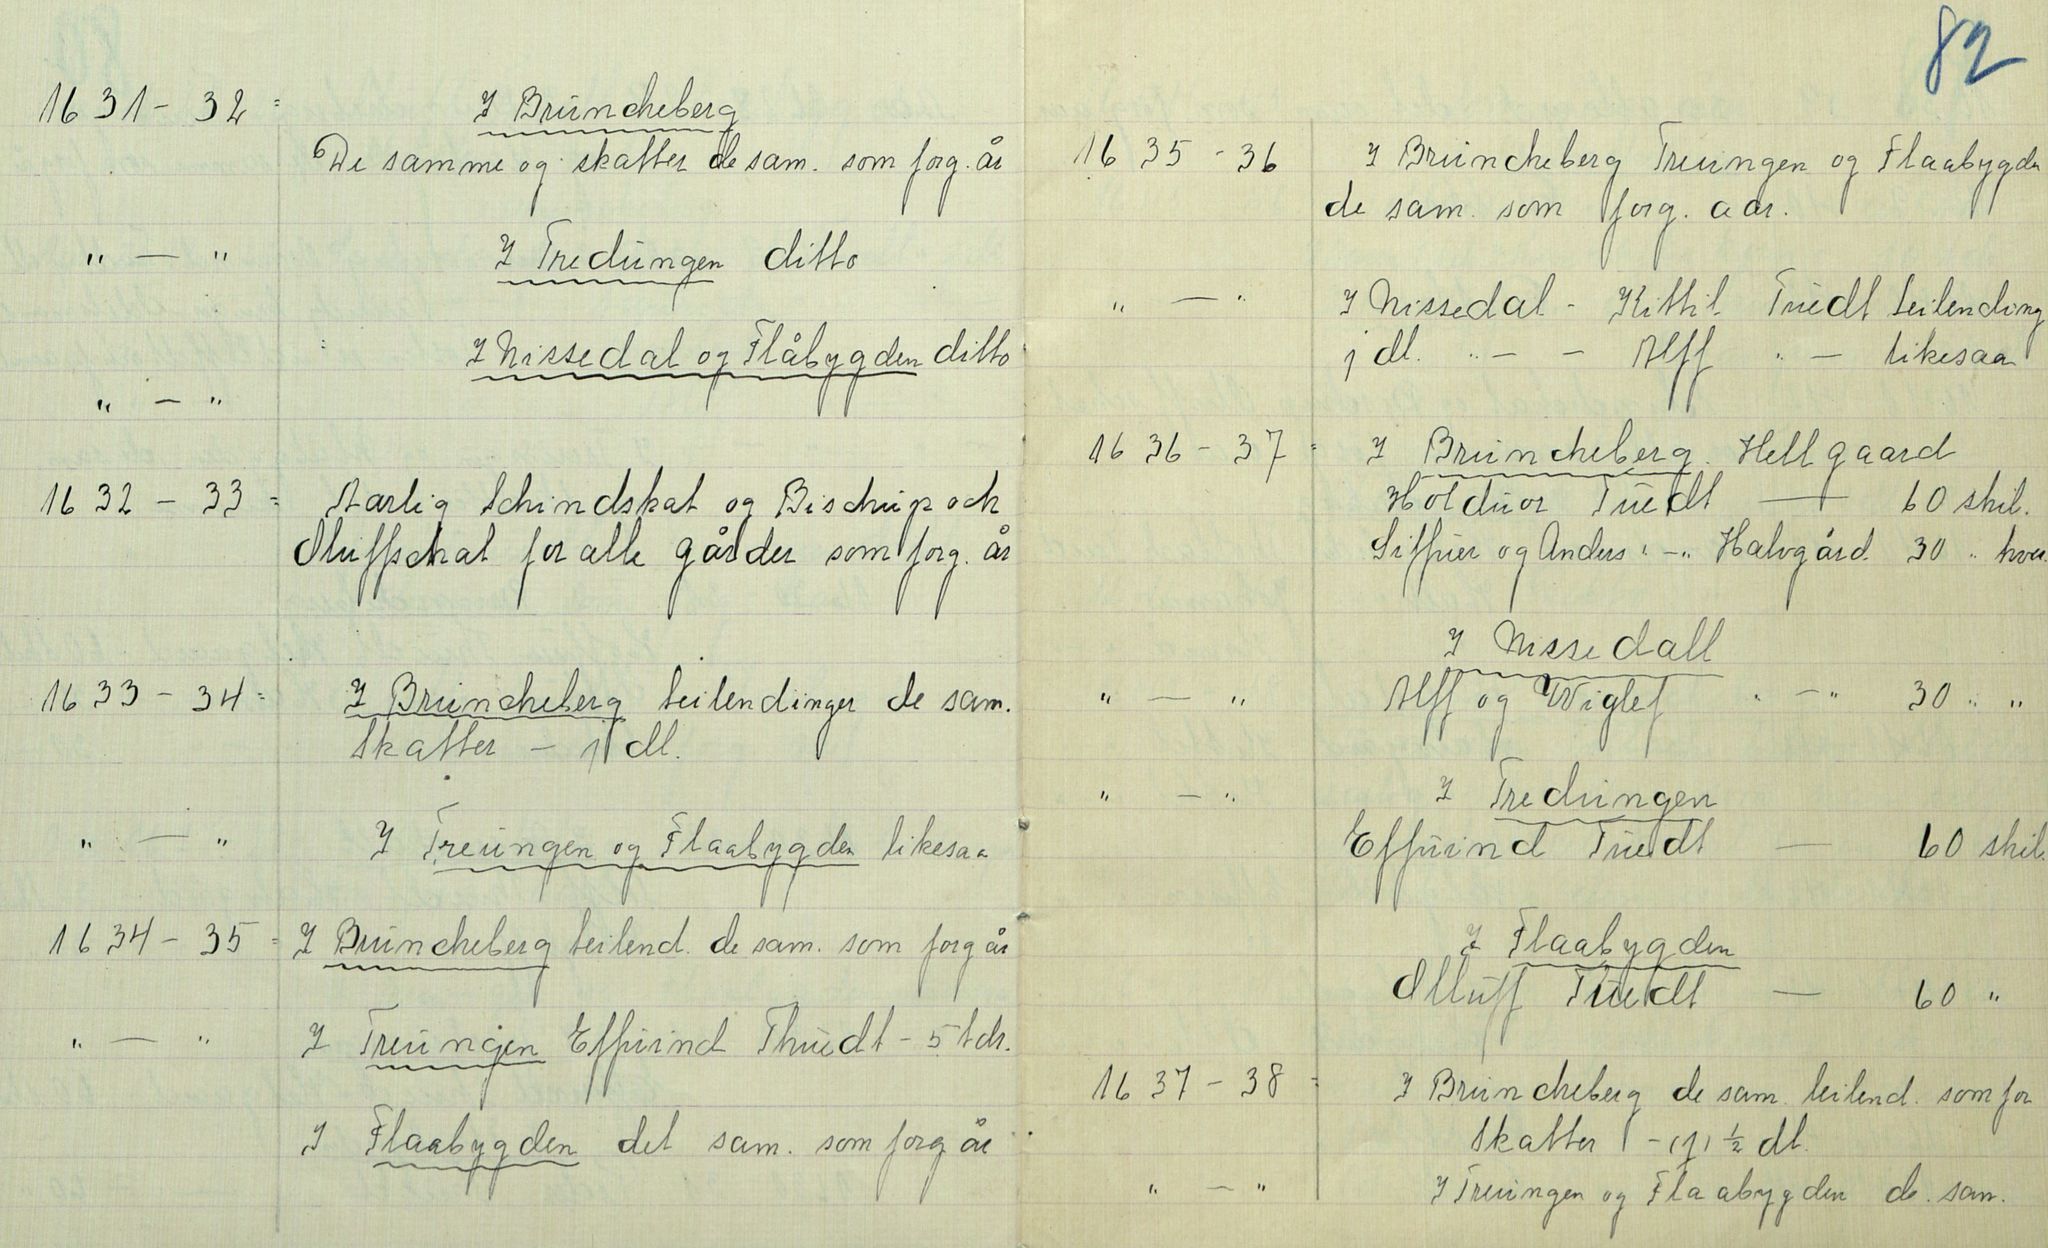 1631-32 = I Brŭncheberg
De samme og skatter de sam. som forg. år
" — " I Tredŭngen ditto
I Nissedal og Flåbygden ditto
" — "
1632-33 = Aarlig Schindskat og Bischŭp och
Olŭffschat for alle gårder som forg. år
1633-34 = I Brŭncheberg leilendinger de sam.
skatter - j dl.
" — " I Treŭngen og Flaabygden likesaa
1634-35 = I Brŭncheberg leilend. de sam. som forg år
" — " I Treŭngen Effŭind Thŭedt - 5 tdr.
I Flaabygden det sam. som forg år
82
1635-36 I Brŭncheberg Treŭngen og Flaabygden
de sam. som forg. aar.
" — " I Nissedal - Kittil Tŭedt leilending
j dl. " - - Alff " - likesaa
1636-37 = I Brŭncheberg. Hellgaard
Holdŭor Tŭedt — 60 skil.
Siffŭer og Anders " - " Halvgård 30 " hver.
I Nissedall
" — " Alff og Wiglef " - " 30 " "
" — " I Tredŭngen
Effŭind Tŭedt — 60 skil.
I Flaabygden
Ollŭff Tŭedt — 60 "
1637-38 = I Brŭncheberg de sam. leilend. som for
skatter - (j) ½ dl.
" — " I Treŭngen og Flaabygden de. sam.